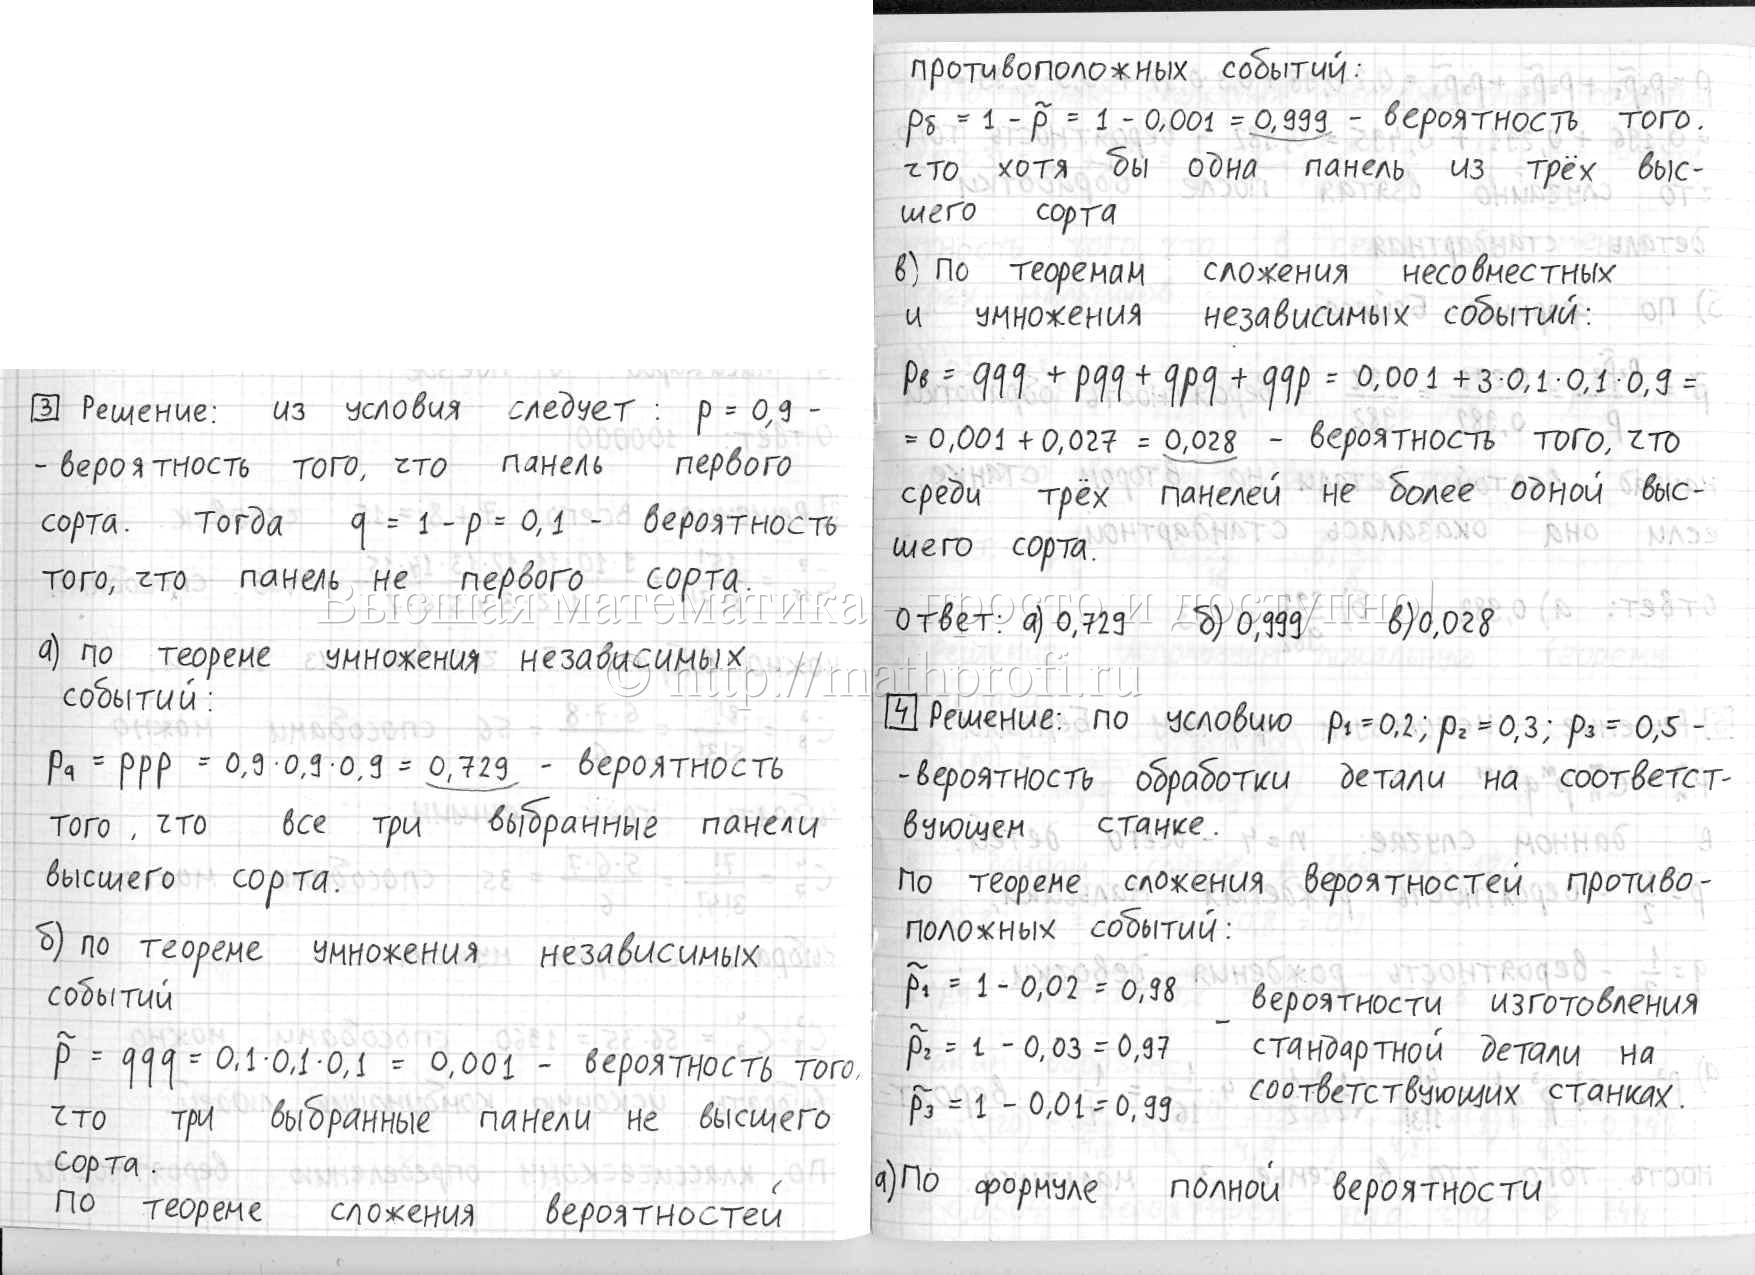 3 Решение: из условия следует: p = 0,9 -
- вероятность того, что панель первого
сорта. Тогда q = 1 - p = 0,1 - вероятность
того, что панель не первого сорта.
а) по теореме умножения независимых
событий:
pа = ppp = 0,9·0,9·0,9 = 0,729 - вероятность
того, что все три выбранные панели
высшего сорта.
б) по теореме умножения независимых
событий
p̃ = qqq = 0,1·0,1·0,1 = 0,001 - вероятность того,
что три выбранные панели не высшего
сорта.
По теореме сложения вероятностей
противоположных событий:
pб = 1 - p̃ = 1 - 0,001 = 0,999 - вероятность того.
что хотя бы одна панель из трёх выс-
шего сорта
в) по теоремам сложения несовместных
и умножения независимых событий:
pв = qqq + pqq + qpq + qqp = 0,001 + 3·0,1·0,1·0,9 =
= 0,001 + 0,027 = 0,028 - вероятность того, что
среди трёх панелей не более одной выс-
шего сорта.
Ответ: а) 0,729 б) 0,999 в) 0,028
4 Решение: по условию p1 = 0,2; p2 = 0,3; p3 = 0,5 -
- вероятность обработки детали на соответст-
вующем станке.
По теореме сложения вероятностей противо-
положных событий:
p̃1 = 1 - 0,02 = 0,98
p̃2 = 1 - 0,03 = 0,97
p̃3 = 1 - 0,01 = 0,99
- вероятности изготовления
стандартной детали на
соответствующих станках.
а) По формуле полной вероятности
Высшая математика – просто и доступно!
© http://mathprofi.ru